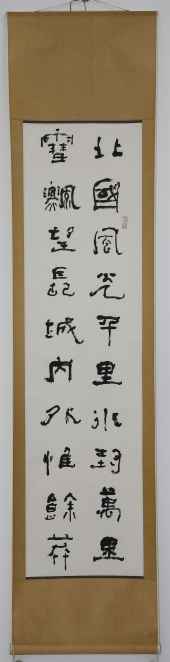 北國風光千里冰封萬里
雪飄望長城內外惟餘莽